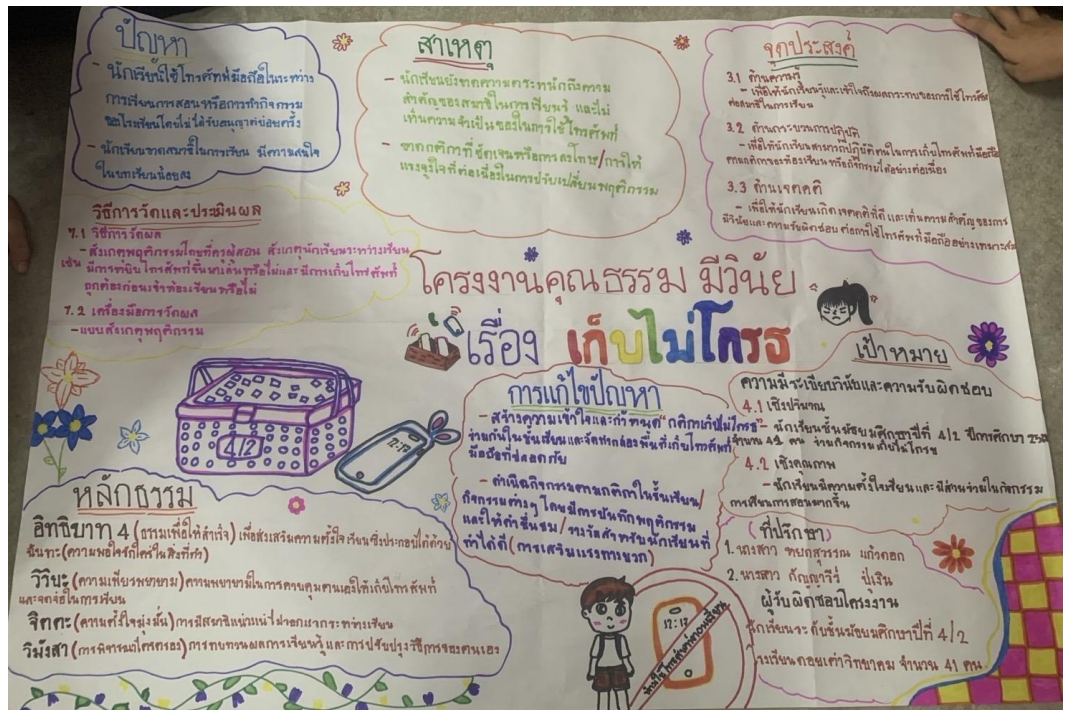 ปัญหา
- นักเรียนใช้โทรศัพท์มือถือในระหว่าง
การเรียนการสอนหรือการทำกิจกรรม
ของโรงเรียนโดยไม่ได้รับอนุญาตบ่อยครั้ง
- นักเรียนขาดสมาธิในการเรียน มีความสนใจ
ในบทเรียนน้อยลง
สาเหตุ
- นักเรียนยังขาดความตระหนักถึงความ
สำคัญของสมาธิในการเรียนรู้ และไม่
เห็นความจำเป็นของในการใช้โทรศัพท์
- ขาดกติกาที่ชัดเจนหรือการลงโทษ/การให้
แรงจูงใจที่ต่อเนื่องในการปรับเปลี่ยนพฤติกรรม
จุดประสงค์
3.1 ด้านความรู้
- เพื่อให้นักเรียนรู้และเข้าใจถึงผลกระทบของการใช้โทรศัพท์
ต่อสมาธิในการเรียน
3.2 ด้านกระบวนการปฏิบัติ
- เพื่อให้นักเรียนสามารถปฏิบัติตนในการเก็บโทรศัพท์มือถือ
ตามกติกาของห้องเรียนหรือกิจกรรมได้อย่างต่อเนื่อง
3.3 ด้านเจตคติ
- เพื่อให้นักเรียนเกิดเจตคติที่ดี และเห็นความสำคัญของการ
มีวินัยและความรับผิดชอบ ต่อการใช้โทรศัพท์มือถืออย่างเหมาะสม
วิธีการวัดและประเมินผล
7.1 วิธีการวัดผล
- สังเกตพฤติกรรมโดยที่ครูผู้สอน สังเกตนักเรียนระหว่างเรียน
เช่น มีการหยิบโทรศัพท์ขึ้นมาเล่นหรือไม่และ มีการเก็บโทรศัพท์
ถูกต้องก่อนเข้าห้องเรียนหรือไม่
7.2 เครื่องมือการวัดผล
- แบบสังเกตพฤติกรรม
โครงงานคุณธรรม มีวินัย
เรื่อง เก็บไม่โกรธ
4/2
12:17
การแก้ไขปัญหา
- สร้างความเข้าใจและกำหนด "กติกาเก็บไม่โกรธ"
ร่วมกันในชั้นเรียนและจัดหากล่องพื้นที่เก็บโทรศัพท์
มือถือที่ปลอดภัย
- ดำเนินกิจกรรมตามกติกาในชั้นเรียน/
กิจกรรมต่างๆ โดยมีการบันทึกพฤติกรรม
และให้คำชื่นชม/รางวัลสำหรับนักเรียนที่
ทำได้ดี (การเสริมแรงทางบวก)
เป้าหมาย
ความมีระเบียบวินัยและความรับผิดชอบ
4.1 เชิงปริมาณ
- นักเรียนชั้นมัธยมศึกษาปีที่ 4/2 ปีการศึกษา
จำนวน 41 คน ร่วมกิจกรรมเก็บไม่โกรธ
4.2 เชิงคุณภาพ
- นักเรียนมีความตั้งใจเรียน และมีส่วนร่วมในกิจกรรม
การเรียนการสอนมากขึ้น
หลักธรรม
อิทธิบาท 4 (ธรรมเพื่อให้สำเร็จ) เพื่อส่งเสริมความตั้งใจเรียนซึ่งประกอบได้ด้วย
ฉันทะ (ความพอใจรักใคร่ในสิ่งที่ทำ)
วิริยะ (ความเพียรพยายาม) ความพยายามในการควบคุมตนเองให้เก็บโทรศัพท์
และจดจ่อในการเรียน
จิตตะ (ความตั้งใจมุ่งมั่น) การมีสมาธิแน่วแน่ไม่วอกแวกระหว่างเรียน
วิมังสา (การพิจารณาไตร่ตรอง) การทบทวนผลการเรียนรู้ และการปรับปรุงวิธีการของตนเอง
12:17
(ที่ปรึกษา)
1. นางสาว แก้วดอก
2. นางสาว กัญญาวีร์ ปู่เงิน
ผู้รับผิดชอบโครงงาน
นักเรียนระดับชั้นมัธยมศึกษาปีที่ 4/2
โรงเรียนดอยเต่าวิทยาคม จำนวน 41 คน